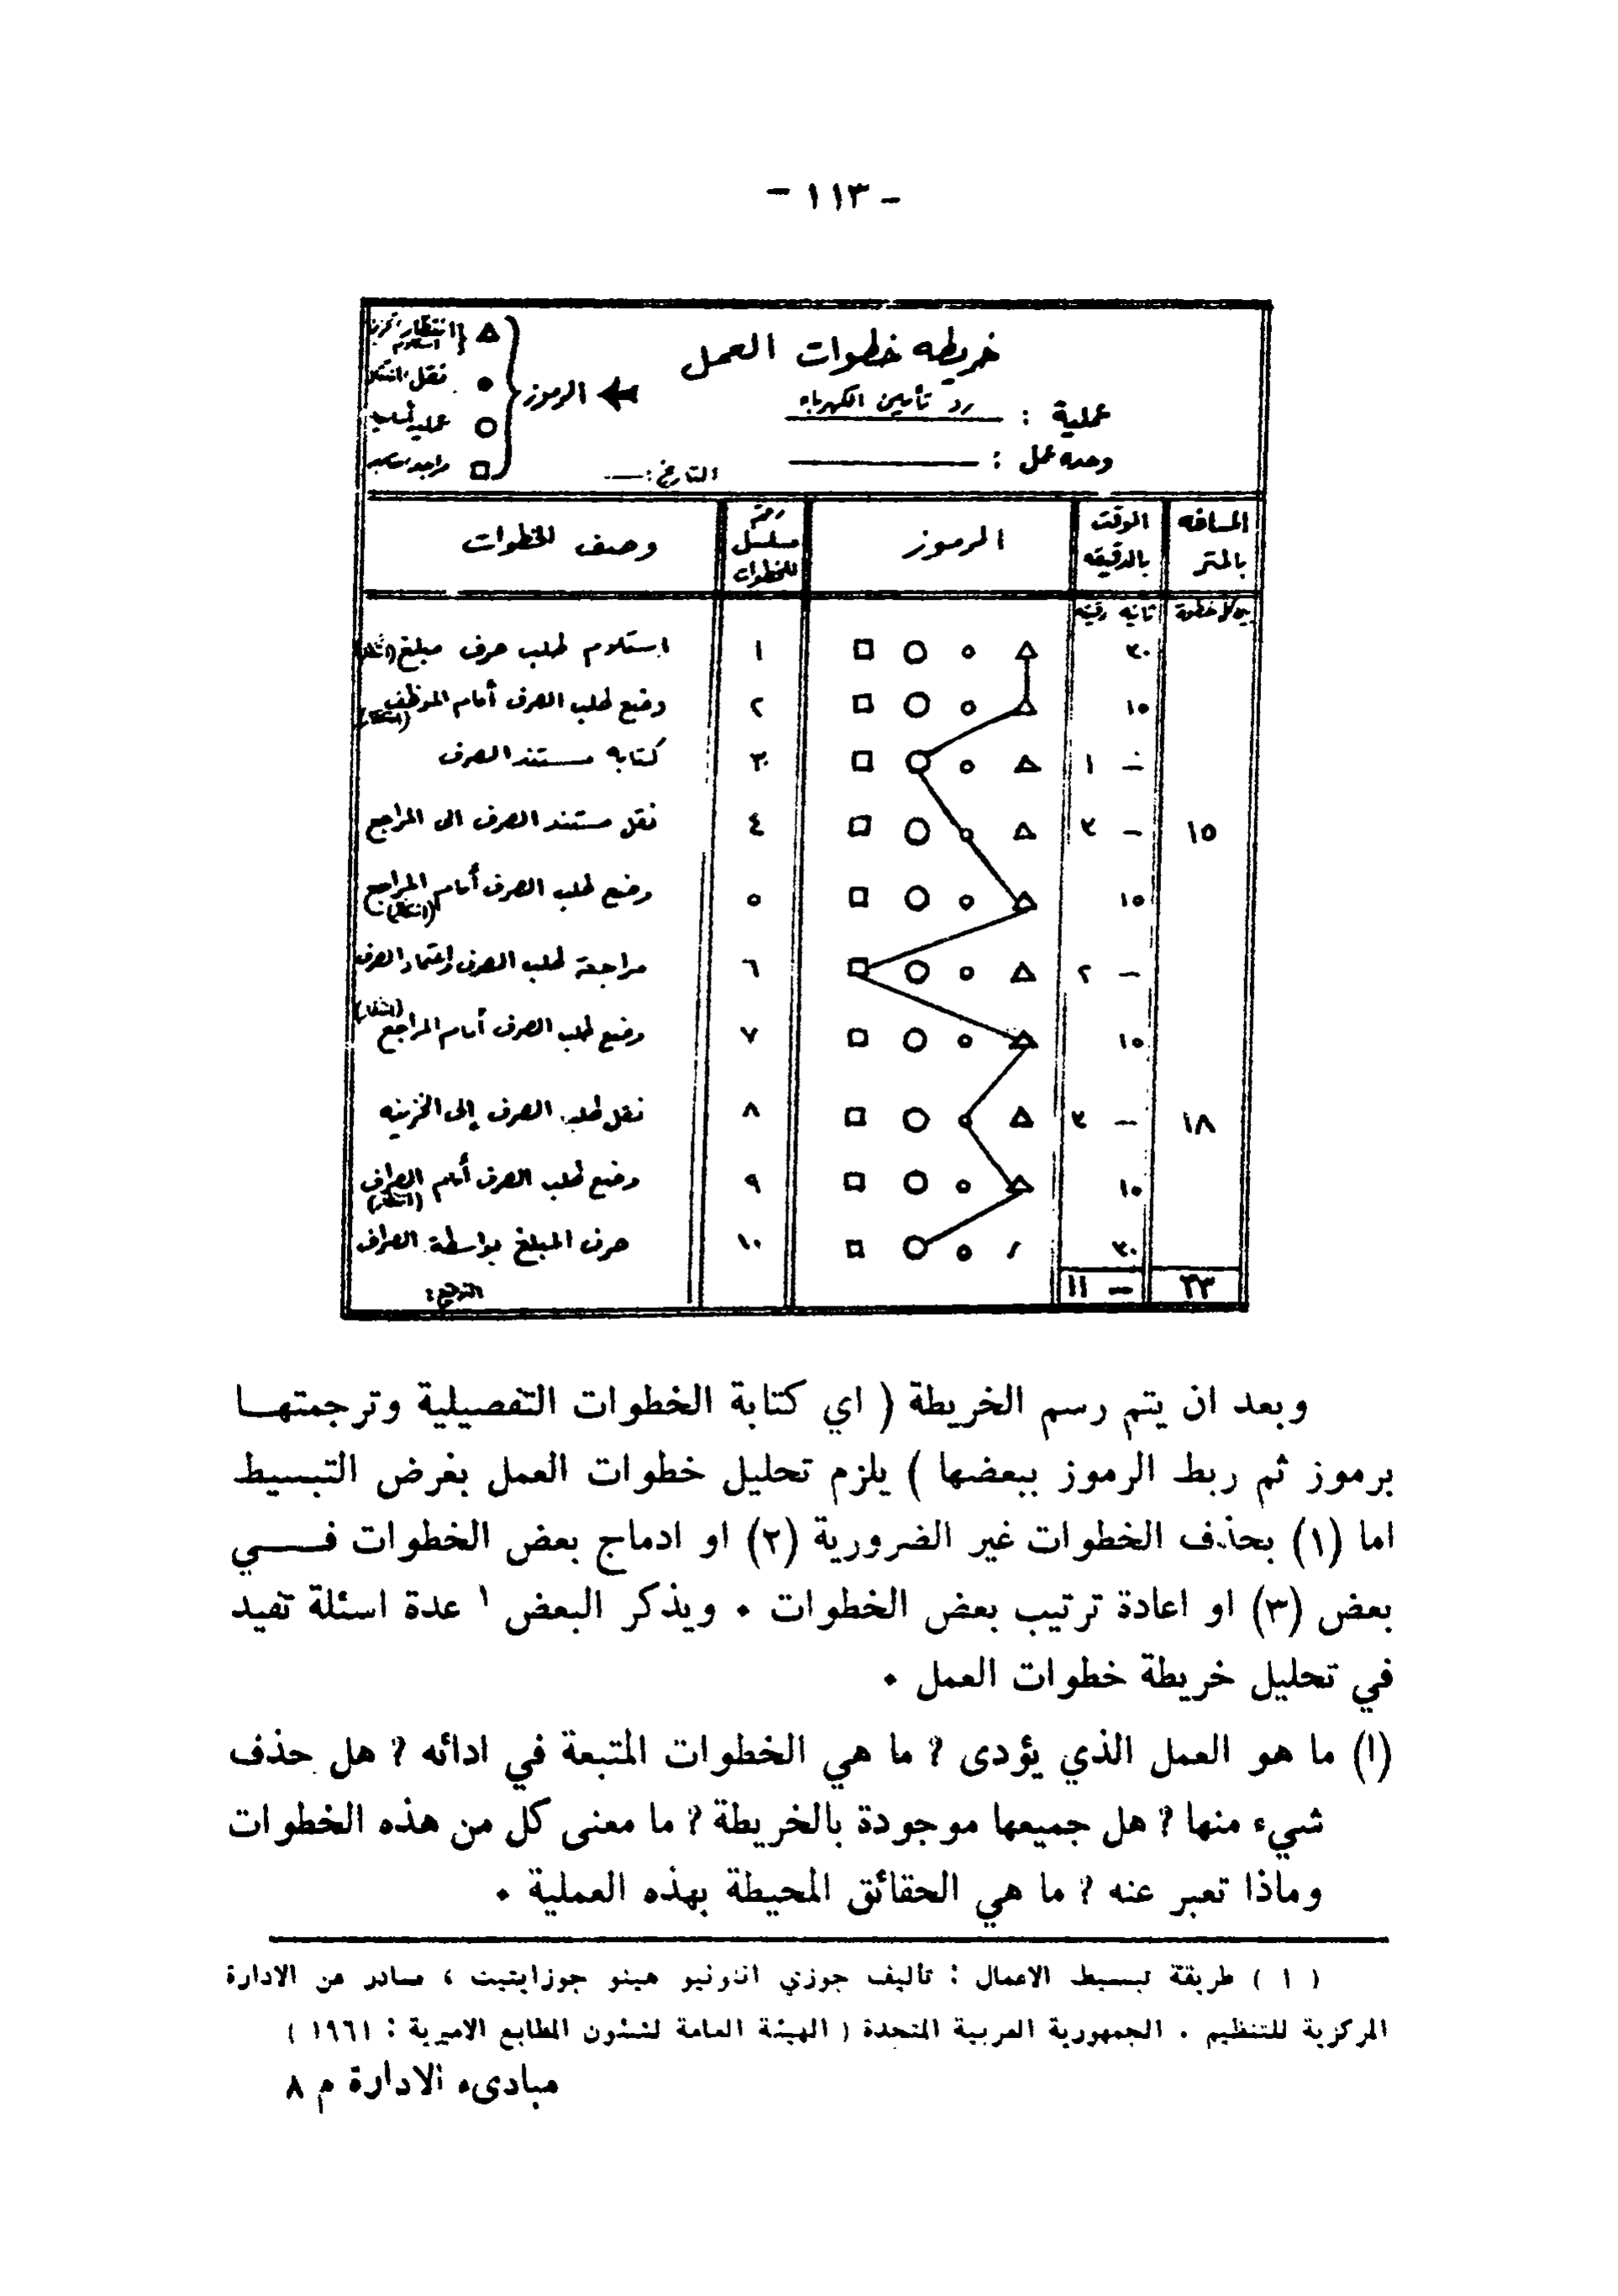 - ١١٣ -
خريطه خطوات العمل
عملية : رد تأمين الكهرباء
وحده عمل :
التاريخ :
الرموز
△ انتظار استلام
● نقل
○ عمليه
□
المسافه بالمتر
الوقت بالدقيقه
الرموز
رقم مسلسل للخطوات
وصف الخطوات
لكل خطوة ثانيه دقيقه
٣٠ △ ○ ○ □ ١ استلام طلب صرف مبلغ (انتظار)
١٥ △ ○ ○ □ ٢ وضع طلب الصرف أمام الموظف (انتظار)
- ١ △ ○ ○ □ ٣ كتابه مستند الصرف
١٥ - ٣ △ ○ ○ □ ٤ نقل مستند الصرف الى المراجع
١٥ △ ○ ○ □ ٥ وضع طلب الصرف أمام المراجع (انتظار)
- ٢ △ ○ ○ □ ٦ مراجعة طلب الصرف واعتماد الصرف
١٥ △ ○ ○ □ ٧ وضع طلب الصرف أمام المراجع (انتظار)
١٨ - ٣ △ ○ ○ □ ٨ نقل طلب الصرف إلى الخزينه
١٥ △ ○ ○ □ ٩ وضع طلب الصرف أمام الصراف (انتظار)
٣٠ ○ ○ □ ١٠ صرف المبلغ بواسطة الصراف
٣٣ - ١١ التوقيع :
وبعد ان يتم رسم الخريطة ( اي كتابة الخطوات التفصيلية وترجمتهــا
برموز ثم ربط الرموز ببعضها ) يلزم تحليل خطوات العمل بغرض التبسيط
اما (١) بحذف الخطوات غير الضرورية (٢) او ادماج بعض الخطوات فـــــي
بعض (٣) او اعادة ترتيب بعض الخطوات ٠ ويذكر البعض ١ عدة اسئلة تفيد
في تحليل خريطة خطوات العمل ٠
(ا) ما هو العمل الذي يؤدى ? ما هي الخطوات المتبعة في ادائه ? هل حذف
شيء منها ? هل جميعها موجودة بالخريطة ? ما معنى كل من هذه الخطوات
وماذا تعبر عنه ? ما هي الحقائق المحيطة بهذه العملية ٠
( ١ ) طريقة تبسيط الاعمال : تأليف جوزي انتونيو هينو جوزايتيت ، صادر عن الادارة
المركزية للتنظيم . الجمهورية العربية المتحدة ( الهيئة العامة لشئون المطابع الاميرية : ١٩٦١ )
مبادىء الادارة م ٨